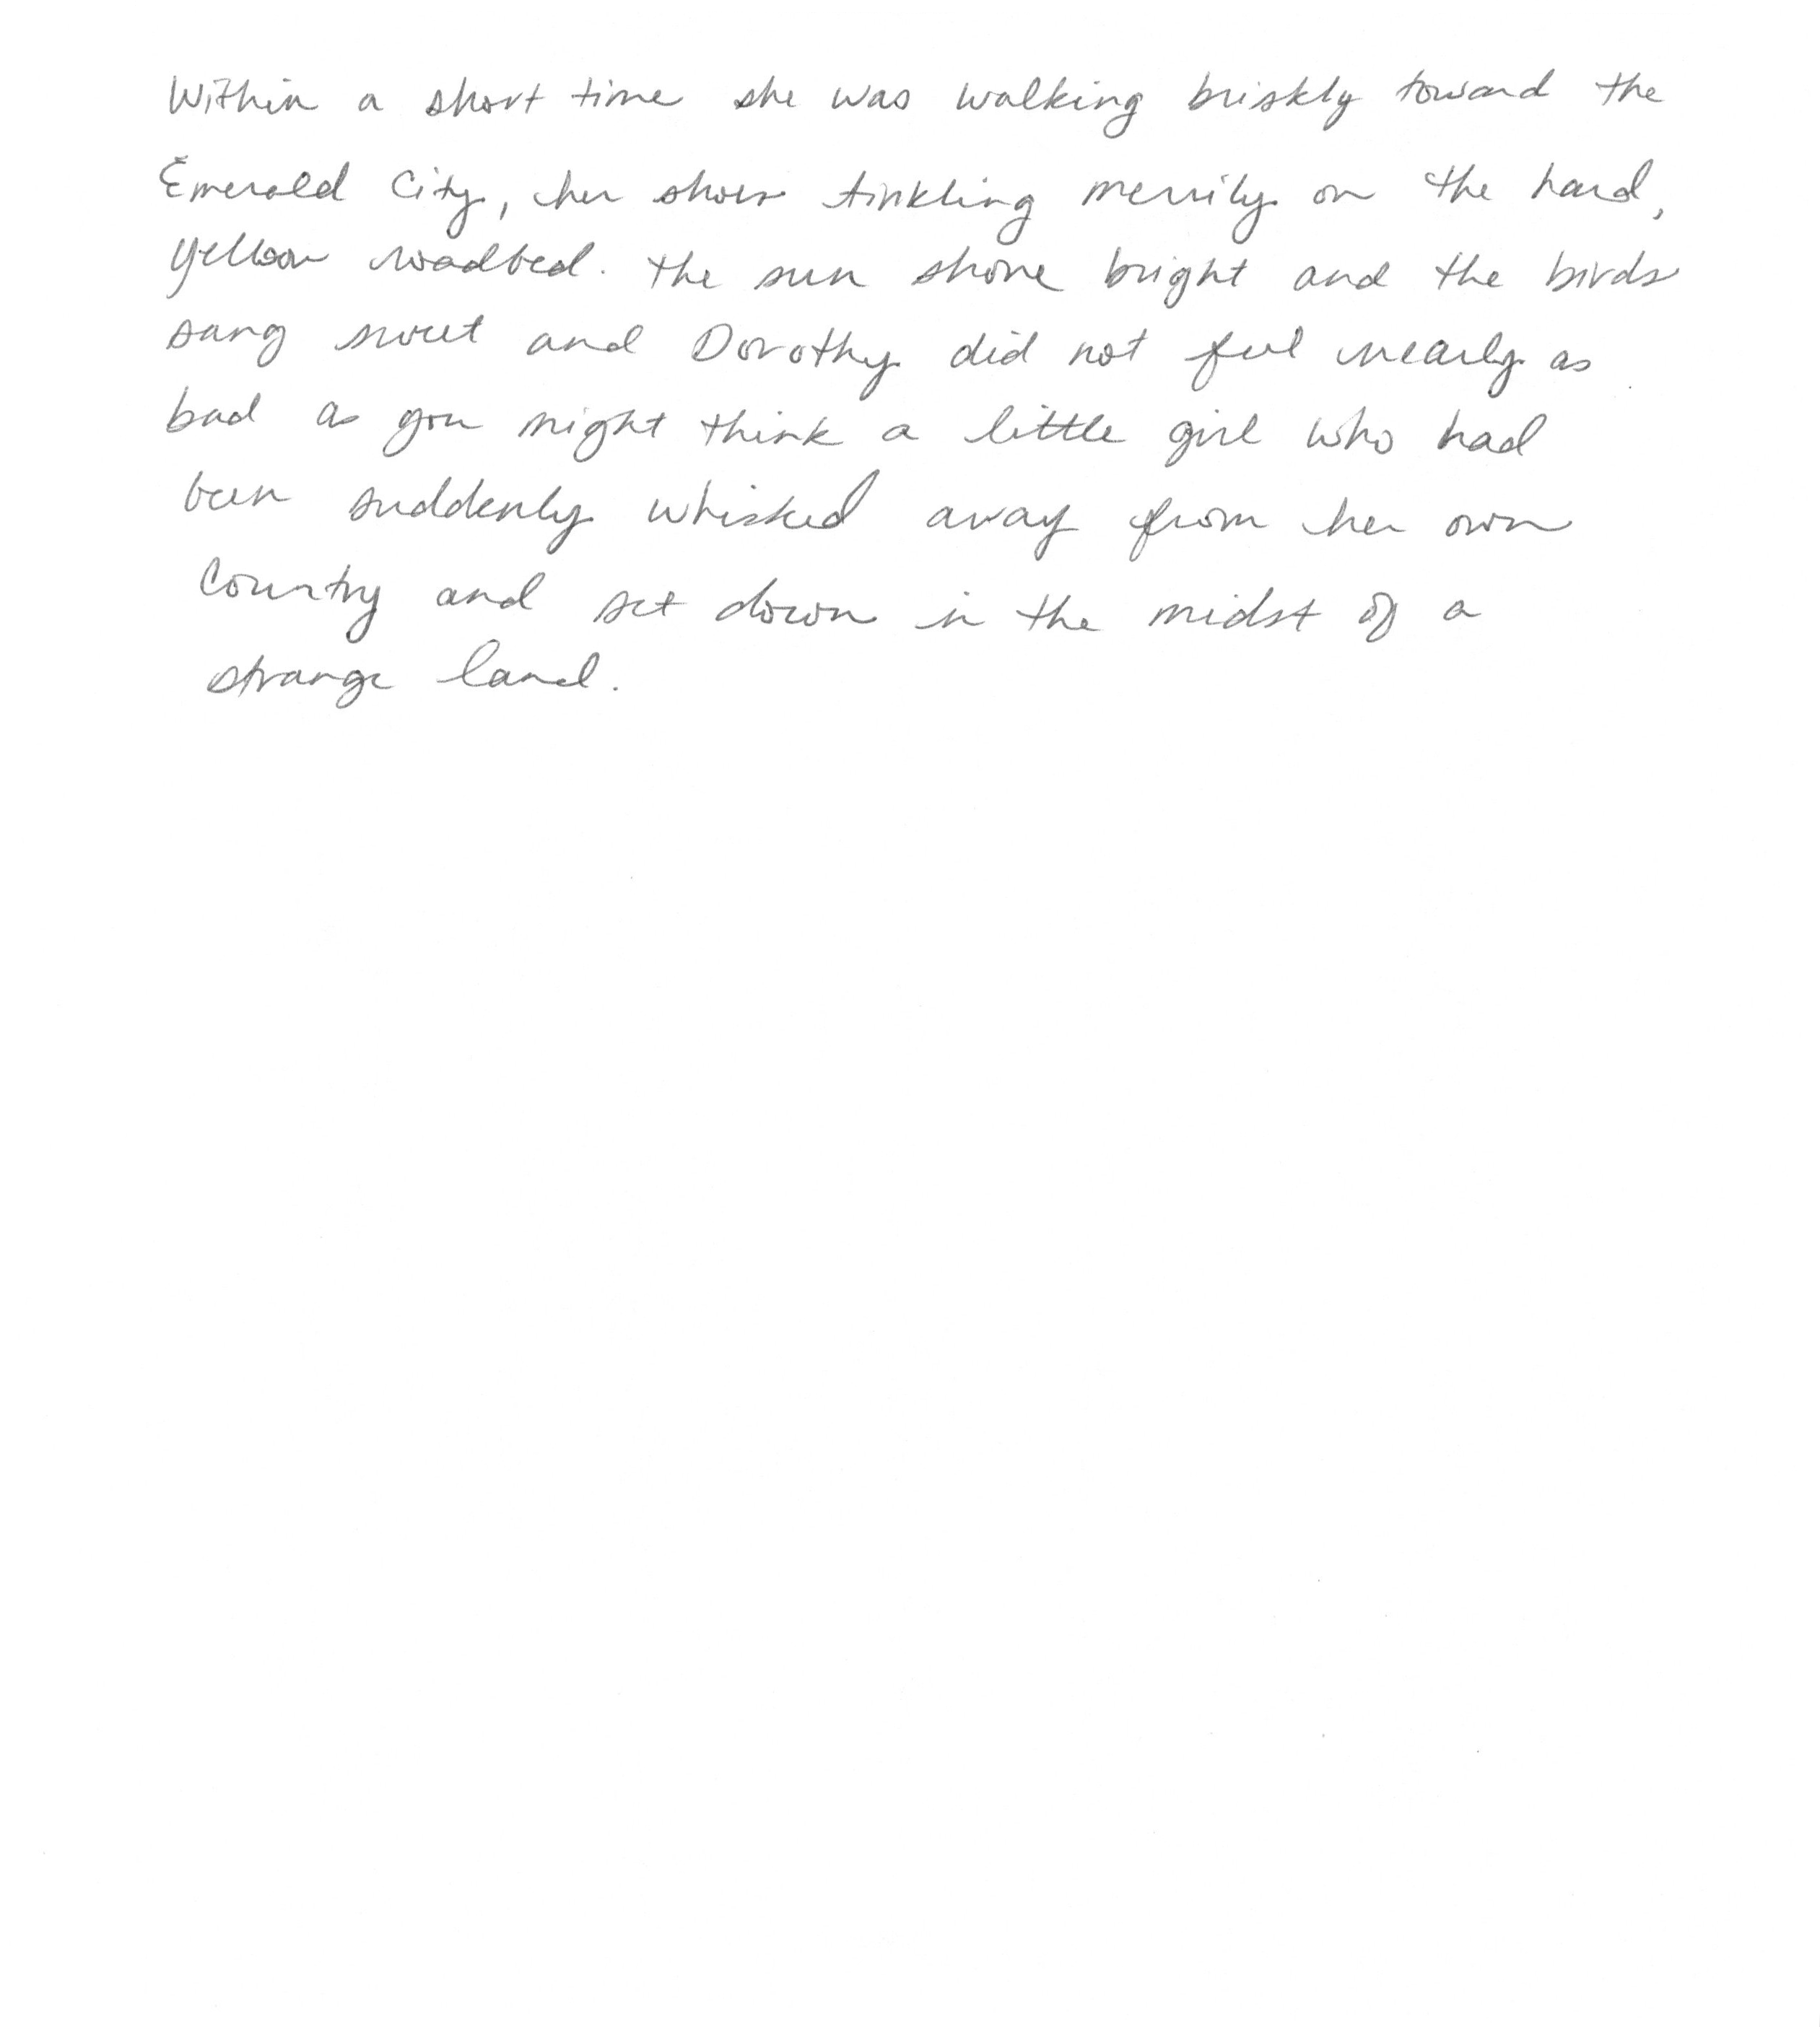 Within a short time she was walking briskly toward the
Emerald City, her shoes tinkling merrily on the hard,
yellow roadbed. The sun shone bright and the birds
sang sweet and Dorothy did not feel nearly as
bad as you might think a little girl who had
been suddenly whisked away from her own
country and set down in the midst of a
strange land.